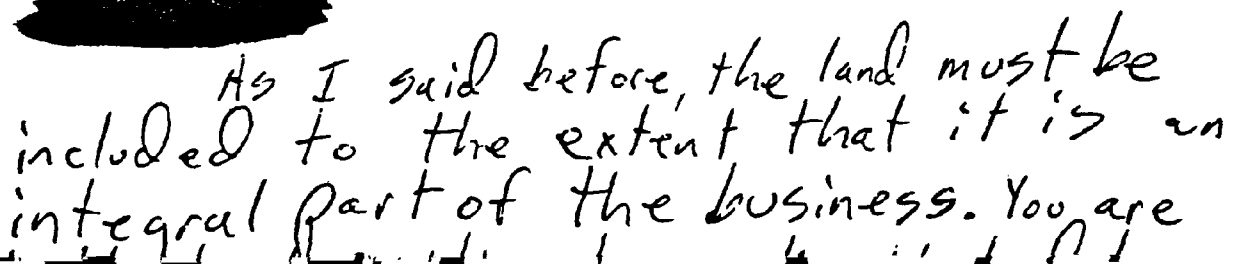 As I said before, the land must be
included to the extent that it is an
integral part of the business. You are